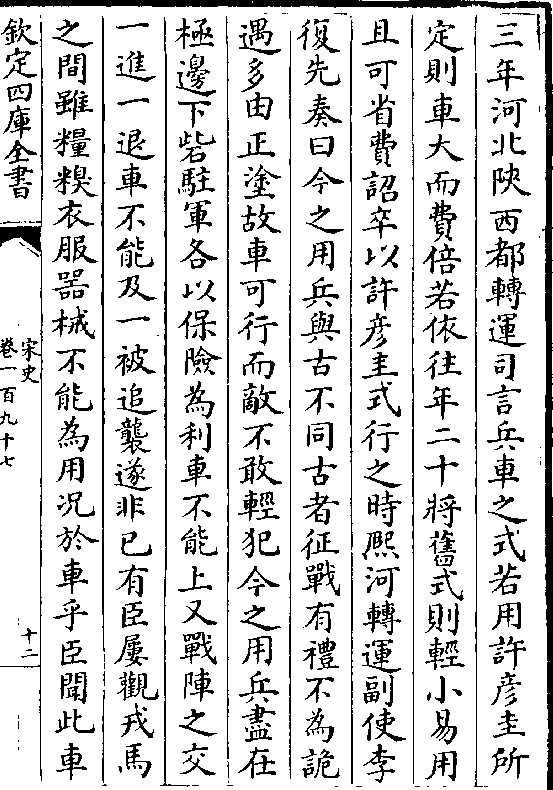 三年河北陜西都轉運司言兵車之式若用許彦圭所
定則車大而費倍若依往年二十將舊式則輕小易用
且可省費詔卒以許彦圭式行之時熈河轉運副使李
復先奏曰今之用兵與古不同古者征戰有禮不為詭
遇多由正塗故車可行而敵不敢輕犯今之用兵盡在
極邊下砦駐軍各以保險為利車不能上又戰陣之交
一進一退車不能及一被追襲遂非已有臣屢觀戎馬
之間雖糧糗衣服器械不能為用况於車乎臣聞此車
欽定四庫全書
宋史
卷一百九十七
十二